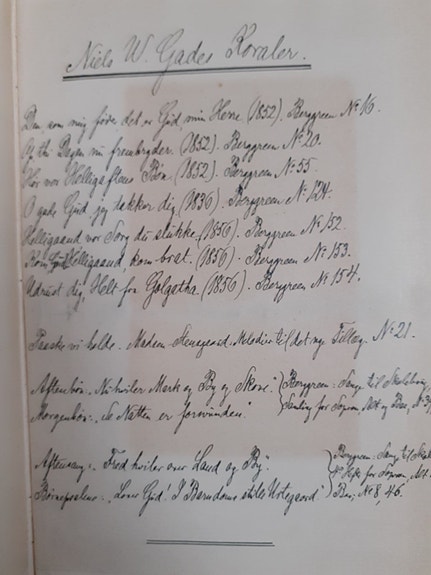 Niels W. Gades Koraler.
Den, som mig føder det er Gud, min Herre (1852). Berggreen No 16.
thi Dagen nu frembryder. (1852). Berggreen No 20.
Hør vor Helligaftens Bøn. (1852). Berggreen No 55.
O gode Gud, jeg takker dig. (1836). Berggreen No 124.
Helligaand, vor Sorg du slukke. (1856). Berggreen No 152.
Kom Helligaand, kom brat. (1856). Berggreen No 153.
Udrust dig, Helt fra Golgatha. (1856). Berggreen No 154.
Paaske vi holde. Madsen-Stensgaard. Melodier til det ny Tillæg. No 21.
Aftenbøn: Nu hviler Mark og By og Skove. Berggreen: Sange til Skolebrug,
Morgenbøn: Se Natten er forsvunden. Samling for Sopran, Alt og Bas, No
Aftensang: Fred hviler over Land og By. Berggreen: Sange til
Børnepsalme: Lover Gud! I Barndoms stille Urtegaard. Hefte for Sopran, Alt
Bas, No 8, 46.